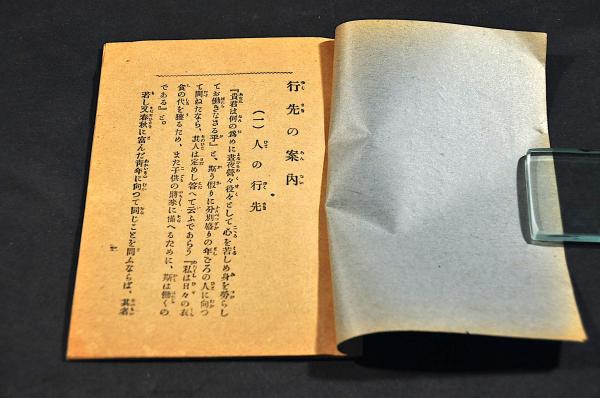 行先の案内
(一)人の行先
『貴君は何の為めに晝夜營々役々として心を苦しめ身を勞らし
てお働きなさる乎』と、斯う假りに分別盛りの年ごろの人に向つ
て問ねたなら、其人は定めし答へて云ふであらう『私は日々の衣
食の代を獲るため、また子供の將來に備へるために、斯は働くの
である』と。
若し又春秋に富んだ靑年に向つて同じことを問ふならば、其者